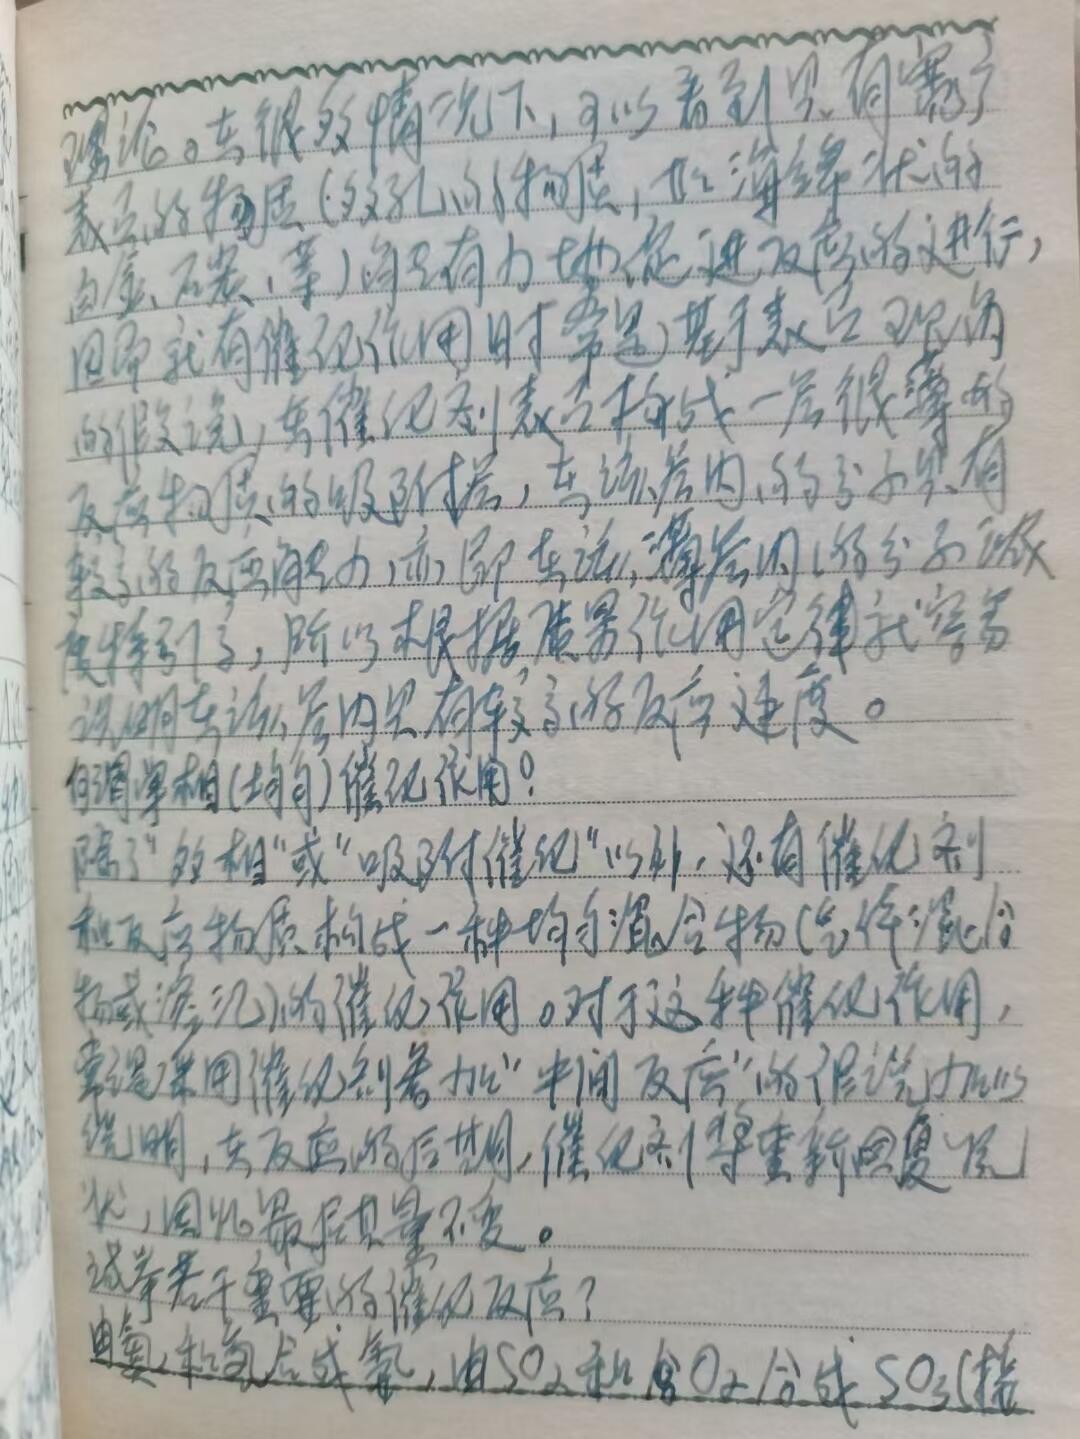 理论。在很多情况下，可以看到只有露了
表面的物质（多孔的物质，如海绵状的
白金、石炭、等）能有力地促进反应的进行，
但即就有催化作用时常是基于表面现为
的假说，在催化剂表面构成一层很薄的
反应物质的吸附层，在该层内的分子具有
较高的反应能力，亦即在该薄层内的分子浓
度特别高，所以根据质量作用定律就容易
说明在该层内具有较高的反应速度。
何谓单相（均匀）催化作用？
除了“多相”或“吸附催化”以外，还有催化剂
和反应物质构成一种均匀混合物（气体混合
物或溶液）的催化作用。对于这种催化作用，
常是采用催化剂参加“中间反应”的假说加以
说明，在反应的后期，催化剂将重新回复原
状，因此最后其量不变。
试举若干重要的催化反应？
由氮和氢合成氨，由SO₂和O₂合成SO₃（接